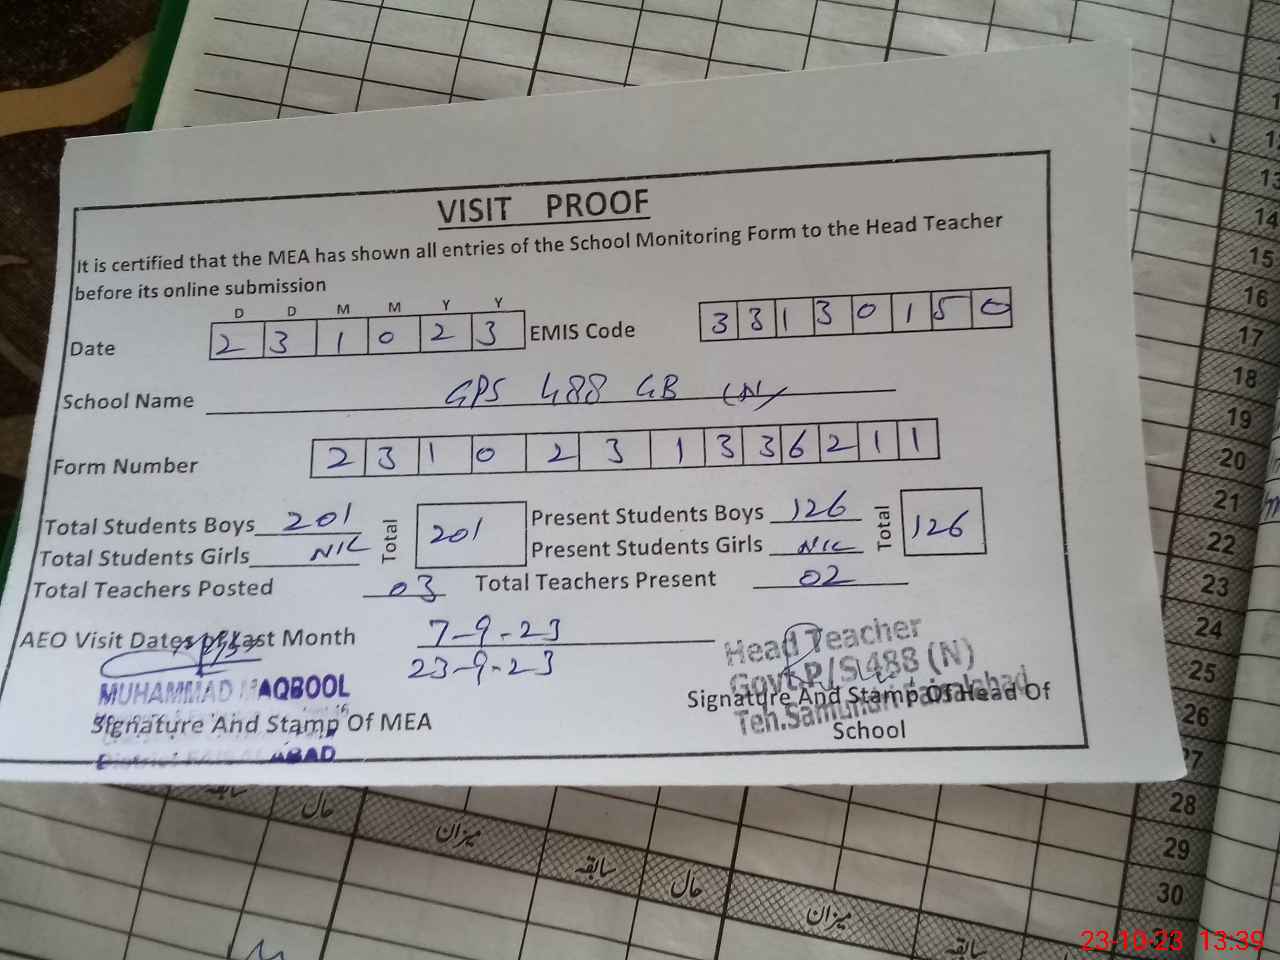 VISIT PROOF
It is certified that the MEA has shown all entries of the School Monitoring Form to the Head Teacher
before its online submission
D D M M Y Y
Date 2 3 1 0 2 3 EMIS Code 3 3 1 3 0 1 5 0
School Name GPS 488 GB (N)
Form Number 2 3 1 0 2 3 1 3 3 6 2 1 1
Total Students Boys 201 Total 201 Present Students Boys 126 Total 126
Total Students Girls NIL Present Students Girls NIL
Total Teachers Posted 03 Total Teachers Present 02
AEO Visit Dates of Last Month 7-9-23
23-9-23
MUHAMMAD MAQBOOL
Signature And Stamp Of MEA
District FAISALABAD
Head Teacher
Govt.P/S.488 (N)
Teh.Samundri Faisalabad
Signature And Stamp Of Head Of
School
12
13
14
15
16
17
18
19
20
21
22
23
24
25
26
27
28
29
30
سابقہ حال میزان سابقہ حال میزان سابقہ
23-10-23 13:39